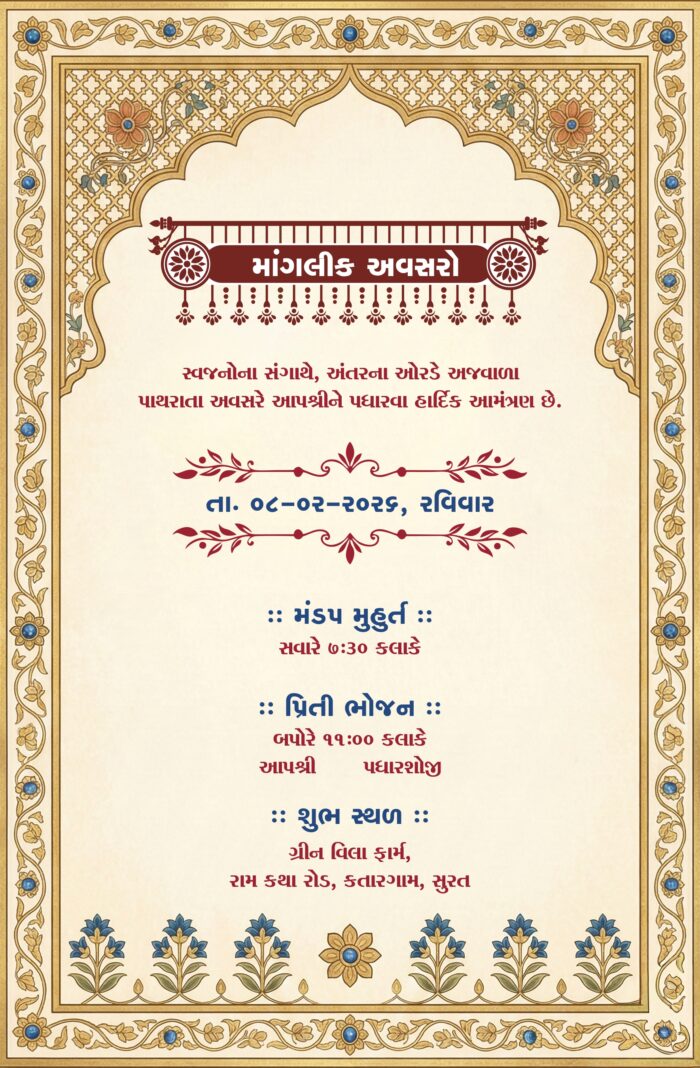 માંગલીક અવસરો
સ્વજનોના સંગાથે, અંતરના ઓરડે અજવાળા
પાથરાતા અવસરે આપશ્રીને પધારવા હાર્દિક આમંત્રણ છે.
તા. ૦૮-૦૨-૨૦૨૬, રવિવાર
:: મંડપ મુહુર્ત ::
સવારે ૭:૩૦ કલાકે
:: પ્રિતી ભોજન ::
બપોરે ૧૧:૦૦ કલાકે
આપશ્રી પધારશોજી
:: શુભ સ્થળ ::
ગ્રીન વિલા ફાર્મ,
રામ કથા રોડ, કતારગામ, સુરત